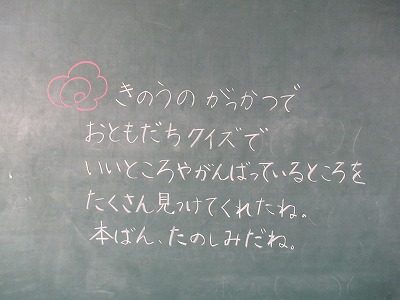 きのうの がっかつで
おともだちクイズで
いいところやがんばっているところを
たくさん見つけてくれたね。
本ばん、たのしみだね。